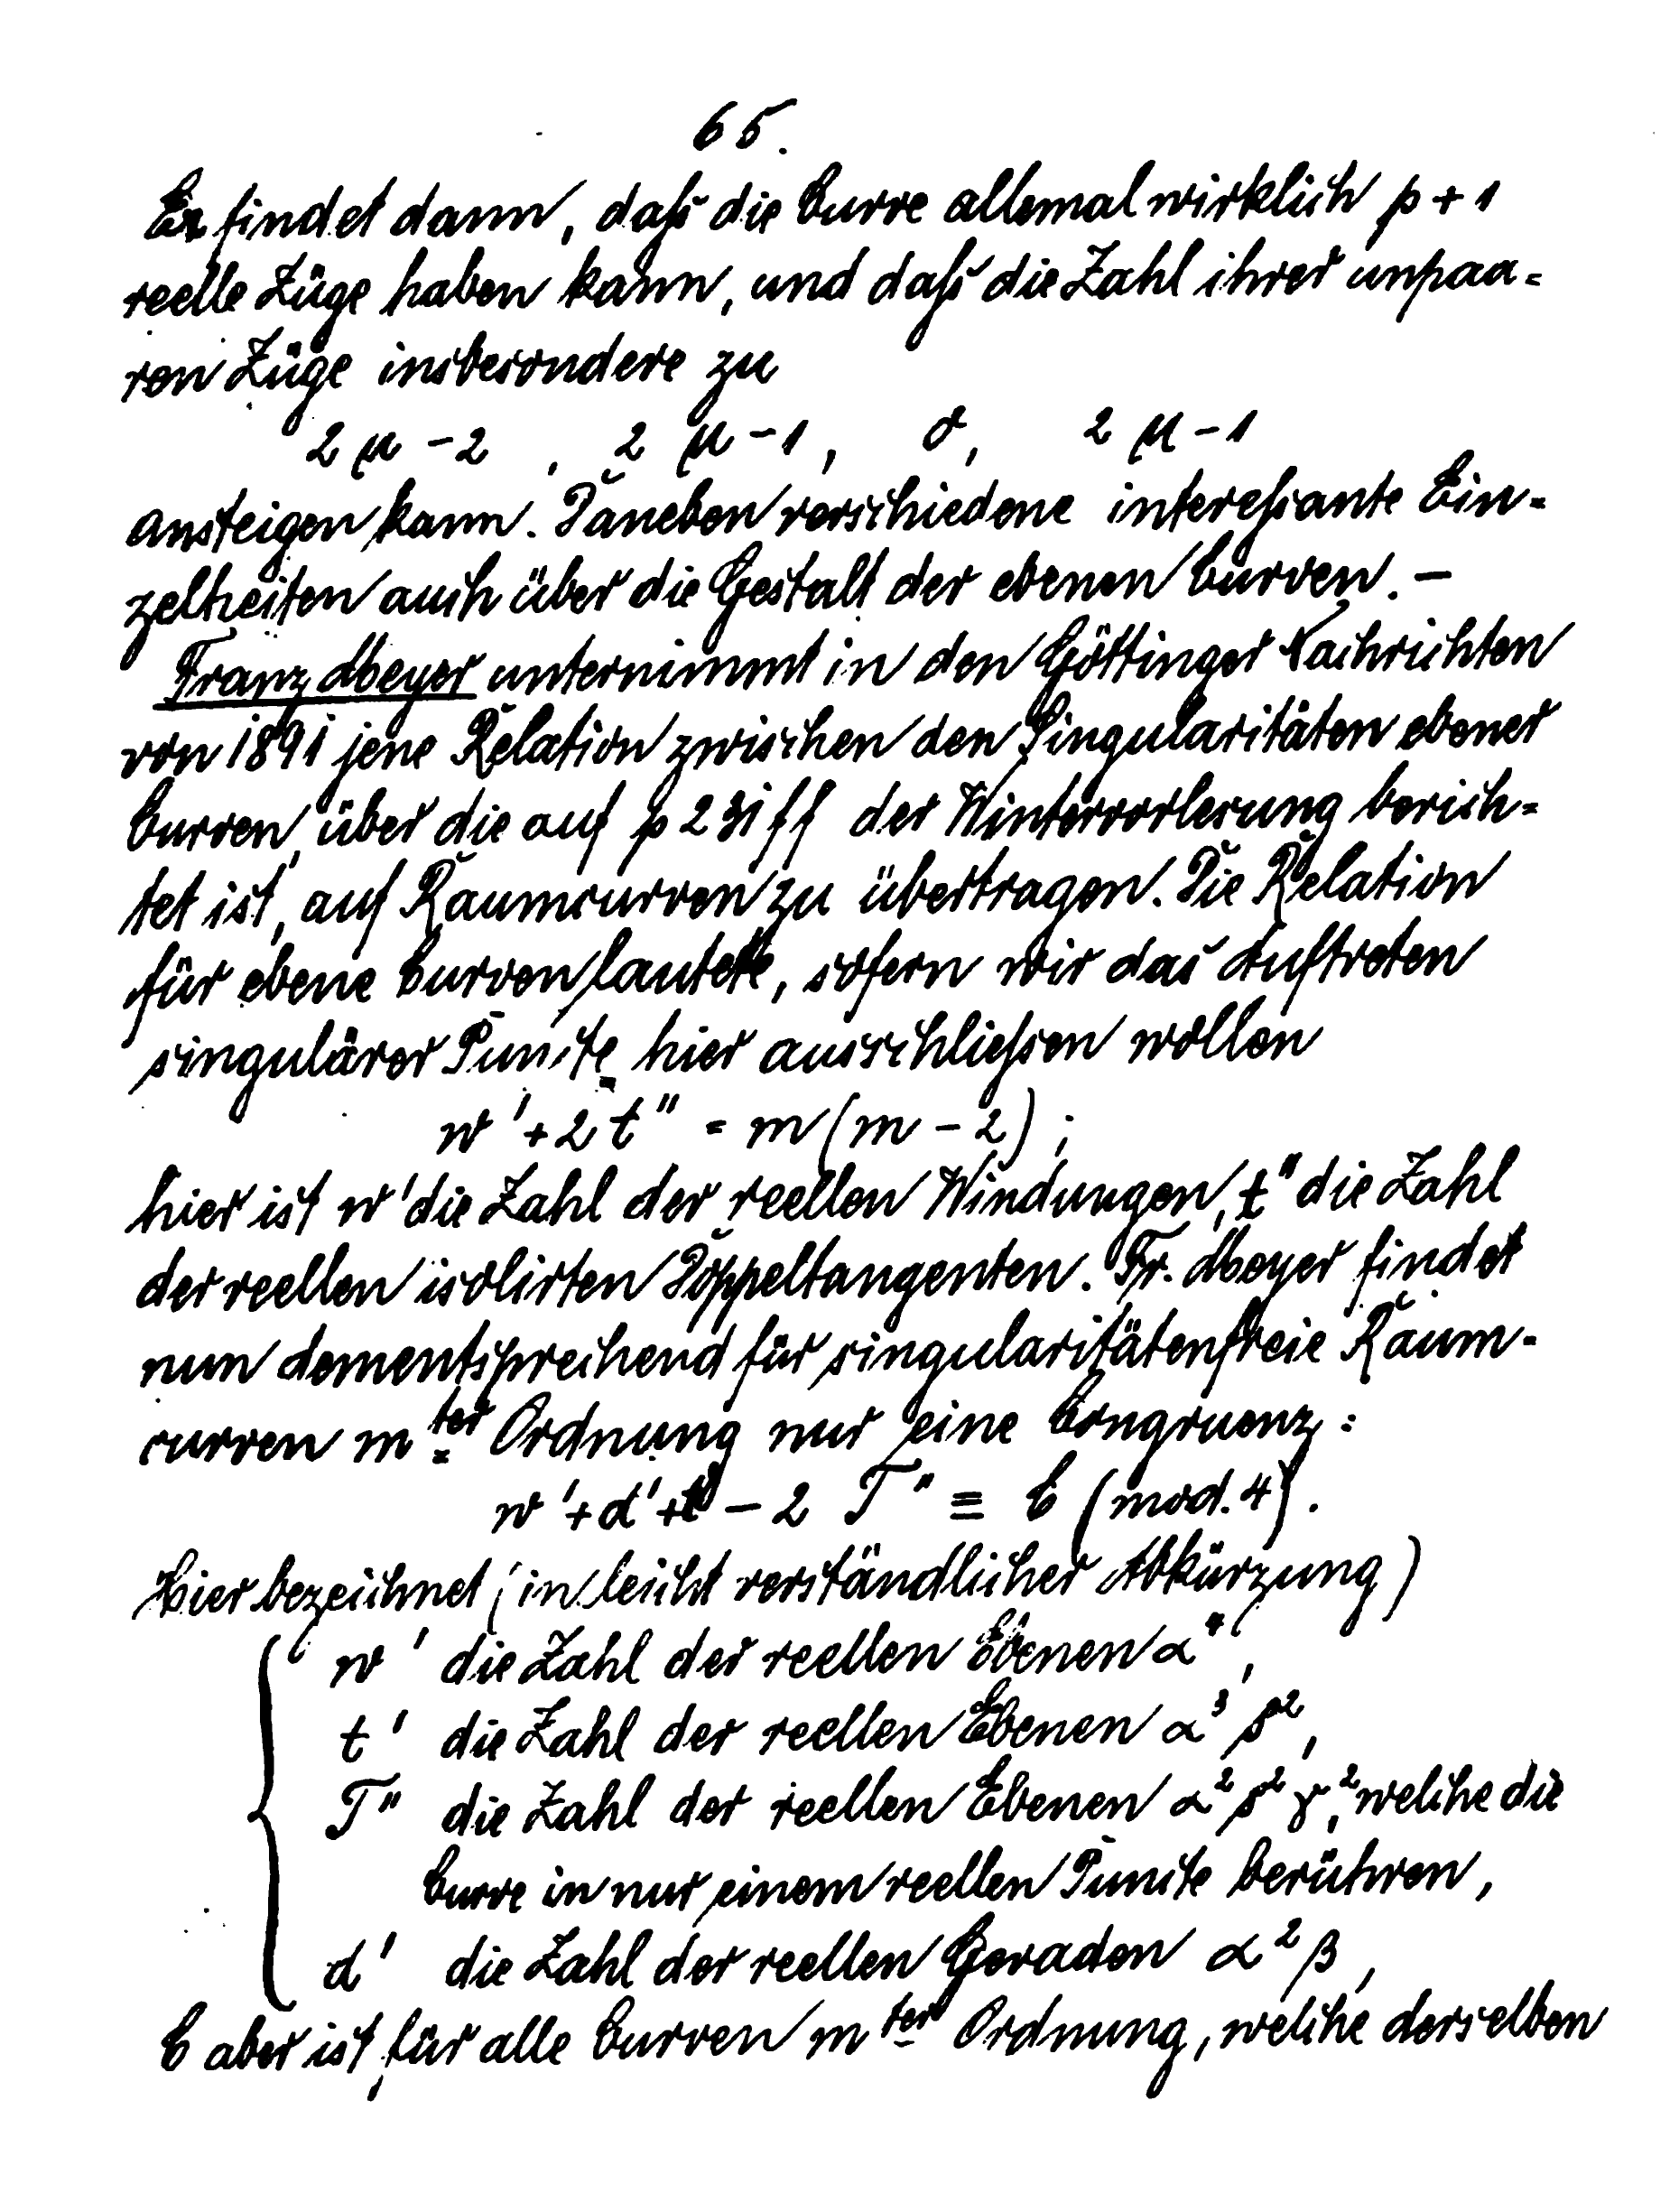 65.
Er findet dann, daß die Curve allemal wirklich p + 1
reelle Züge haben kann, und daß die Zahl ihrer unpaa-
ren Züge insbesondere zu
2 μ - 2 , 2 μ - 1, 0, 2 μ - 1
ansteigen kann. Daneben verschiedene interessante Ein-
zelheiten auch über die Gestalt der ebenen Curven. —
Franz Meyer unternimmt in den Göttinger Nachrichten
von 1891 jene Relation zwischen den Singularitäten ebener
Curven, über die auf p 231 ff der Wintervorlesung berich-
tet ist, auf Raumcurven zu übertragen. Die Relation
für ebene Curven lautete, sofern wir das Auftreten
singulärer Puncte hier ausschließen wollen
w' + 2 t'' = m (m - 2) ;
hier ist w' die Zahl der reellen Windungen, t'' die Zahl
der reellen isolirten Doppeltangenten. Fr. Meyer findet
nun dementsprechend für singularitätenfreie Raum-
curven m ter Ordnung nur eine Congruenz:
w' + d' + t' - 2 T'' ≡ C (mod. 4).
Hier bezeichnet (in leicht verständlicher Abkürzung)
w' die Zahl der reellen Ebenen α⁴,
t' die Zahl der reellen Ebenen α³ β²,
T'' die Zahl der reellen Ebenen α² β² γ², welche die
Curve in nur einem reellen Puncte berühren,
d' die Zahl der reellen Geraden α² β,
C aber ist für alle Curven m ter Ordnung, welche derselben